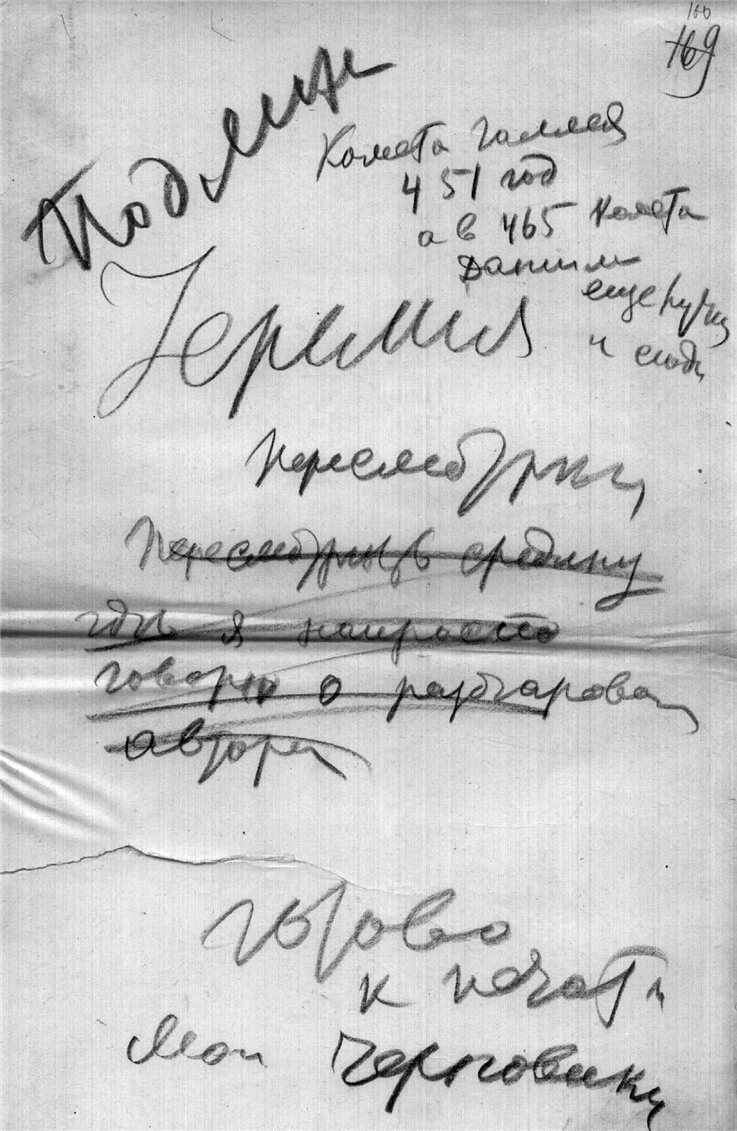 100
169
Подлин
Комета галлея
451 год
а в 465 комета
Даниил
еще
и сюда
Иеремия
пересмотреть
Пересмотреть средину
где я напрасно
говорю о разочарован
автора
готово
к печати
Мои Черновики